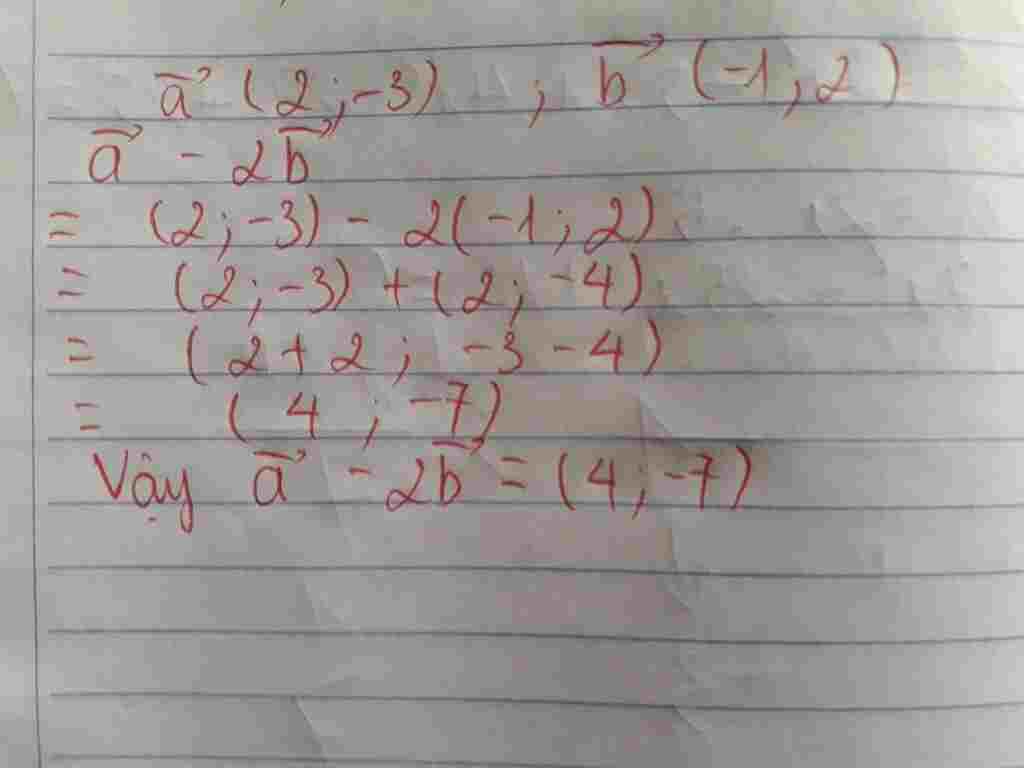 a⃗ (2;-3) ; b⃗ (-1;2)
a⃗ - 2b⃗
= (2;-3) - 2(-1;2)
= (2;-3) + (2; -4)
= (2+2; -3-4)
= (4 ; -7)
Vậy a⃗ - 2b⃗ = (4;-7)